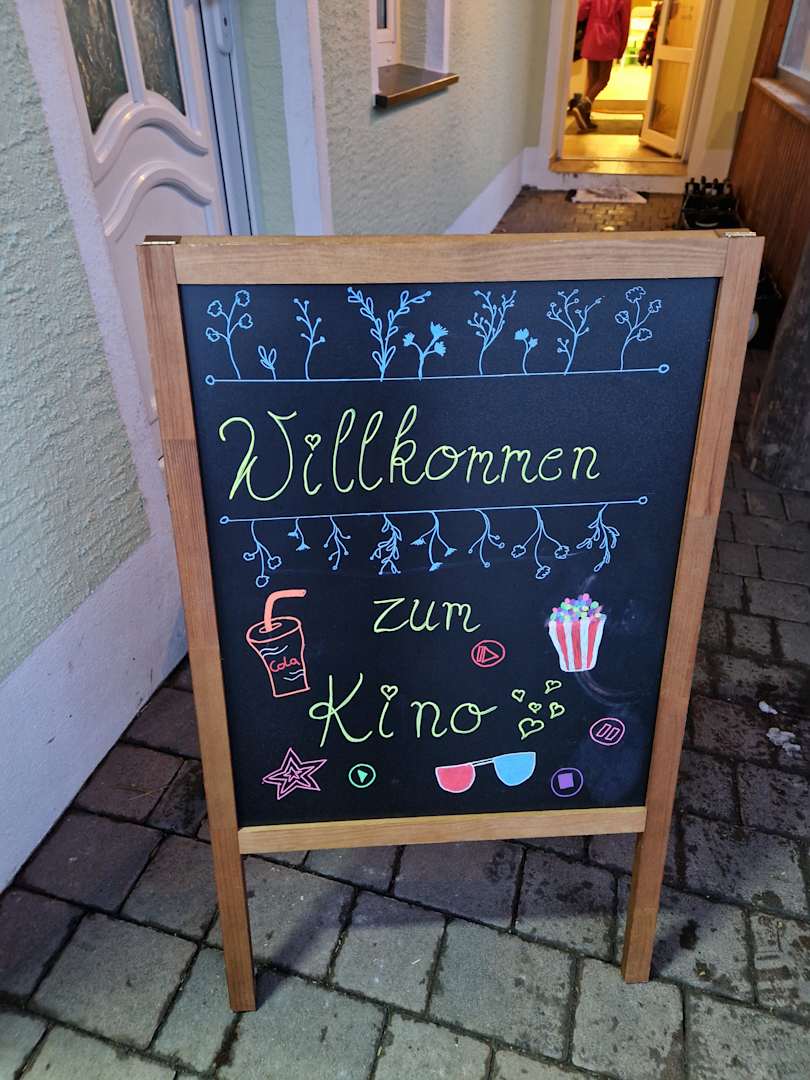 Willkommen
zum
Cola
Kino